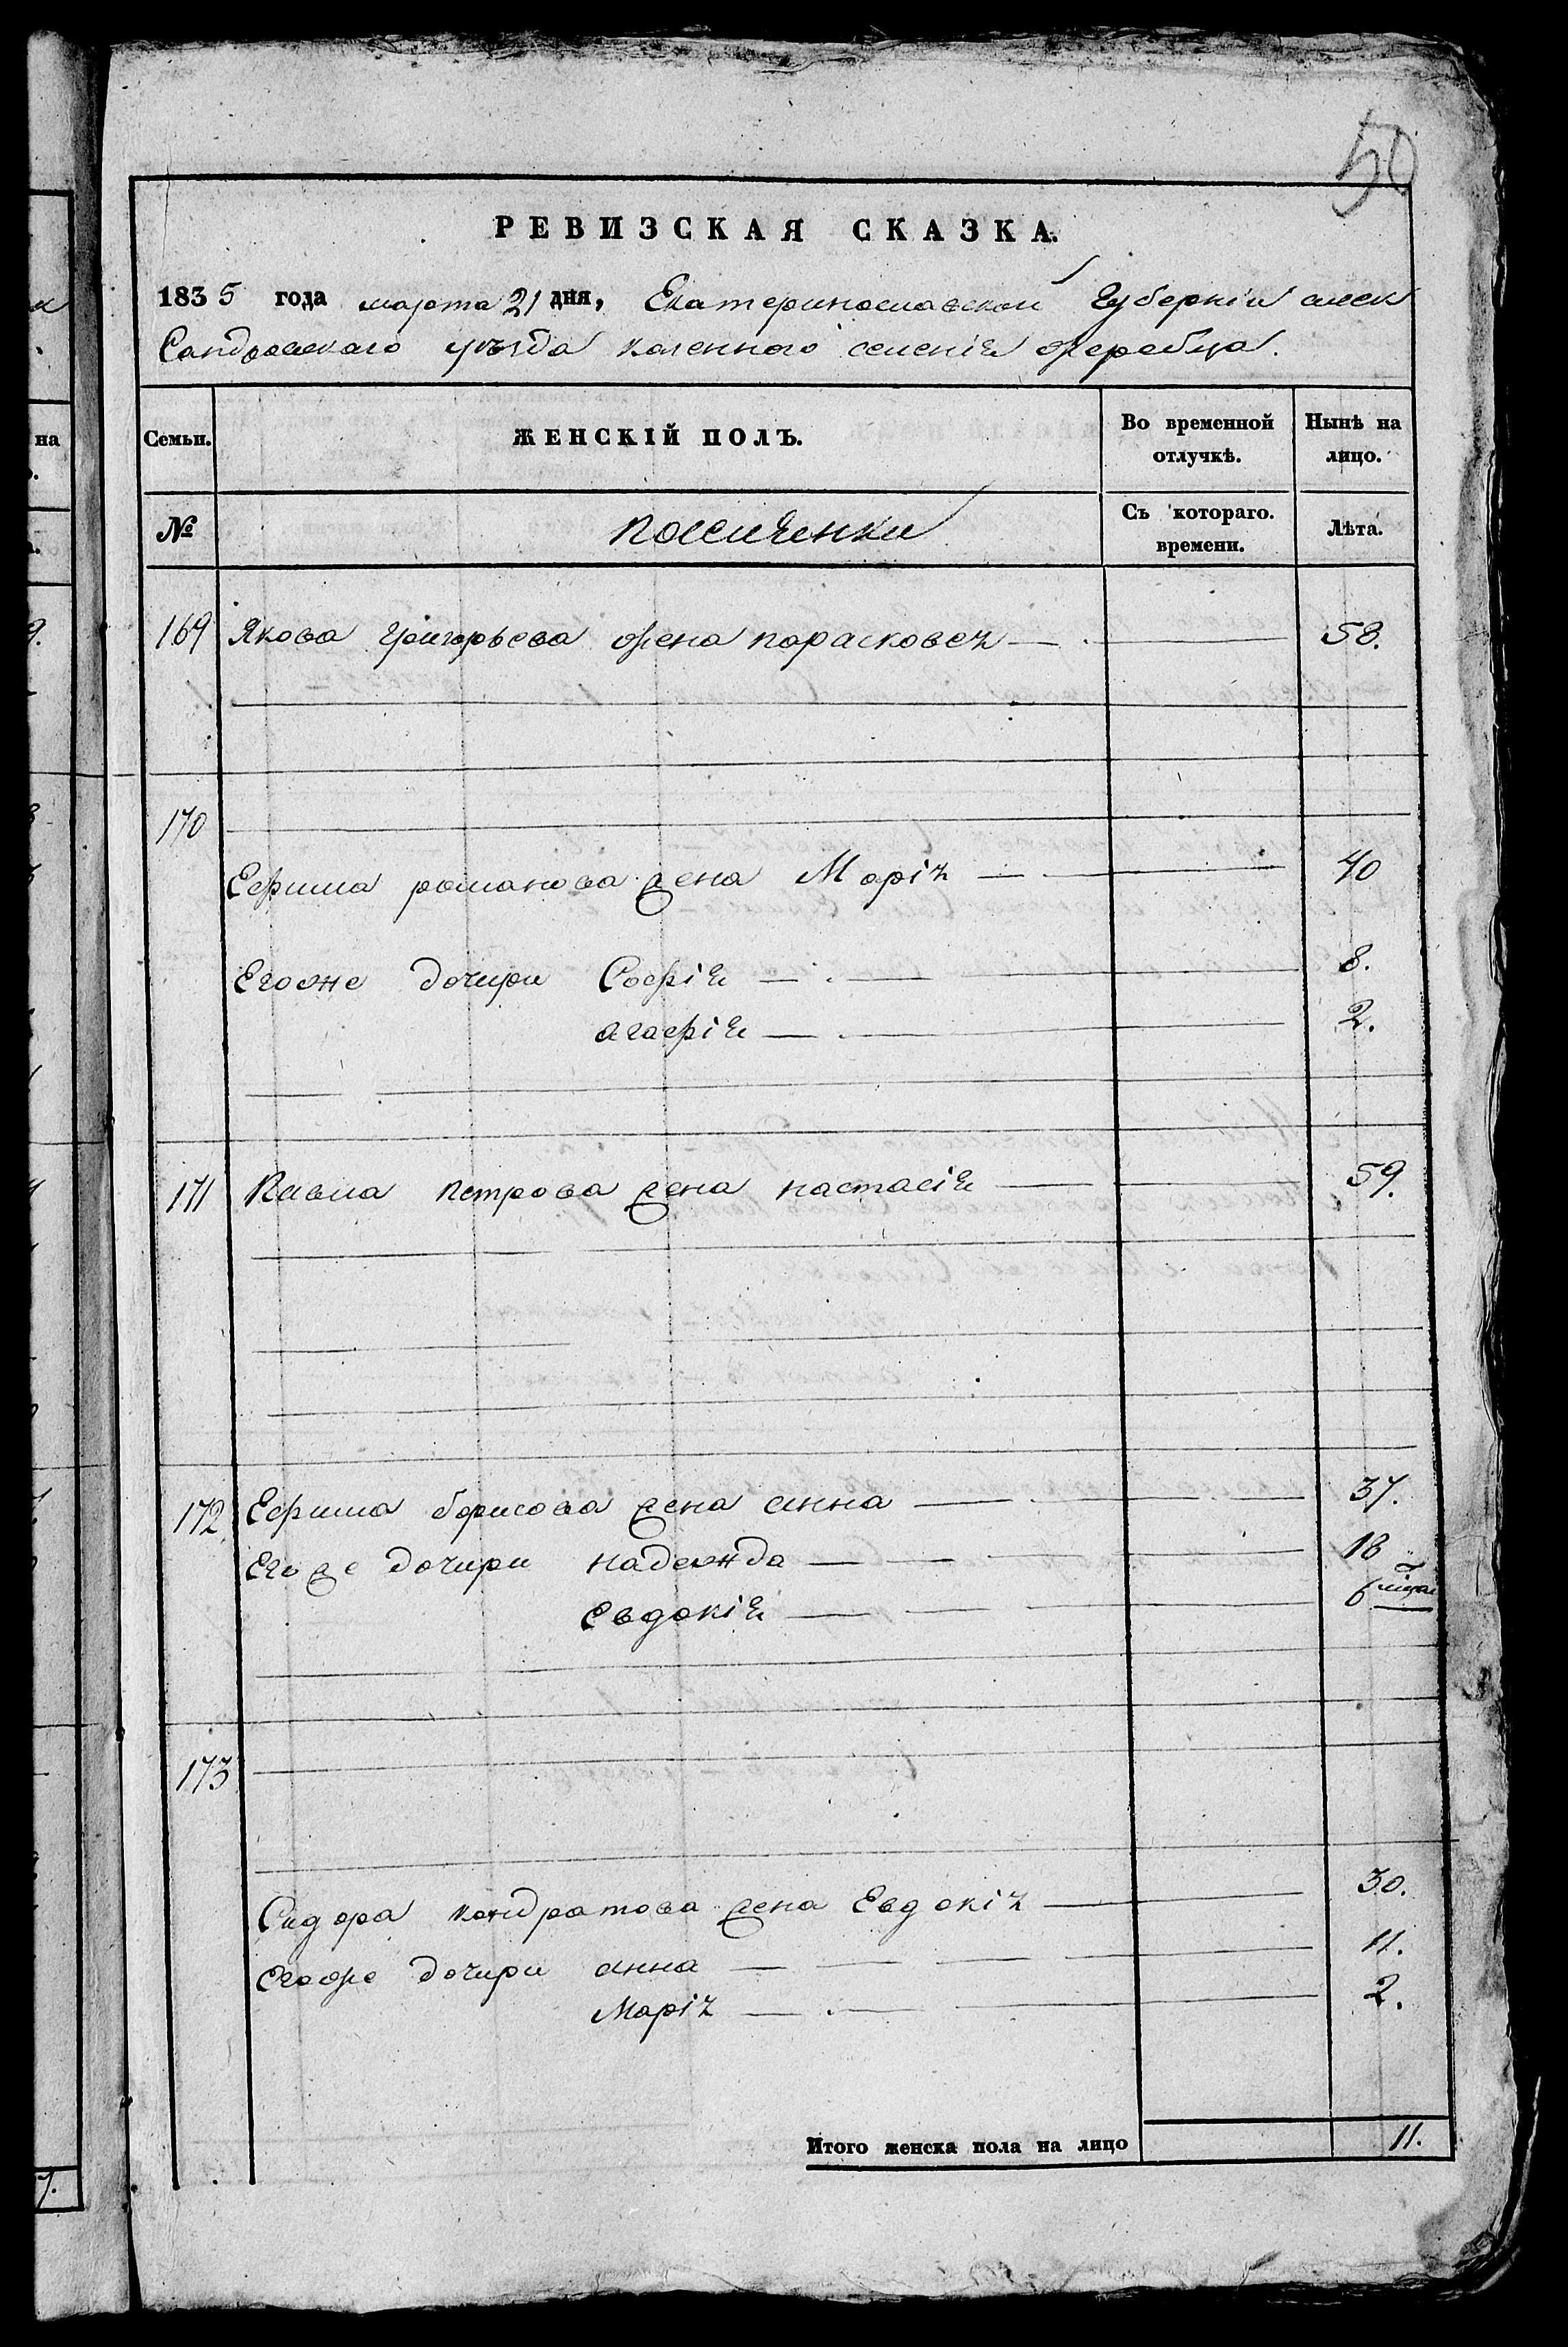 50
РЕВИЗСКАЯ СКАЗКА.
1835 года марта 21 дня, Екатеринославской Губерніи алек
Сандровскаго уѣзда казенного селенія жеребца.
Семьи. ЖЕНСКІЙ ПОЛЪ. Во временной отлучкѣ. Нынѣ на лицо.
№ поселянки Съ котораго. времени. Лѣта.
169 Якова григорьева жена парасковея 58.
170
Ефима романова жена Марія 40
Егоже дочири Софія 8.
агафія 2.
171 Павла петрова жена настасія 59.
172 Ефима борисова жена анна 37.
Егоже дочири надежда 18
Евдокія 6
173
Сидора кондратова жена Евдокія 30.
Егоже дочири анна 11.
Марія 2.
Итого женска пола на лицо 11.